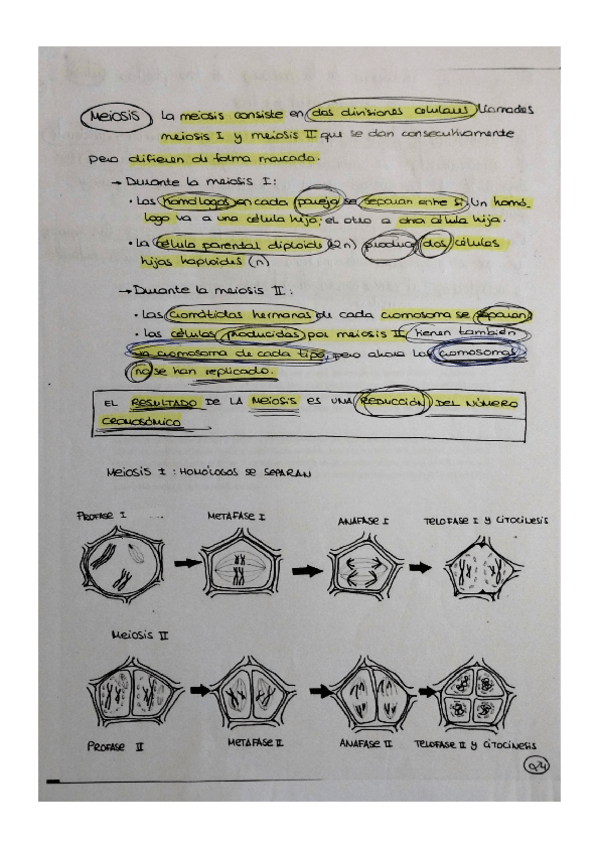 Meiosis La meiosis consiste en dos divisiones celulares llamadas
meiosis I y meiosis II que se dan consecutivamente
pero difieren de forma marcada.
→ Durante la meiosis I:
• Los homólogos en cada pareja se separan entre sí. Un homó-
logo va a una célula hija; el otro a otra célula hija.
• La célula parental diploide (2n) produce dos células
hijas haploides (n)
→ Durante la meiosis II:
• Las cromátidas hermanas de cada cromosoma se separan
• Las células producidas por meiosis II tienen también
un cromosoma de cada tipo, pero ahora los cromosomas
no se han replicado.
EL RESULTADO DE LA MEIOSIS ES UNA REDUCCIÓN DEL NÚMERO
CROMOSÓMICO
MEIOSIS I : HOMÓLOGOS SE SEPARAN
PROFASE I METAFASE I ANAFASE I TELOFASE I Y CITOCINESIS
MEIOSIS II
PROFASE II METAFASE II ANAFASE II TELOFASE II Y CITOCINESIS